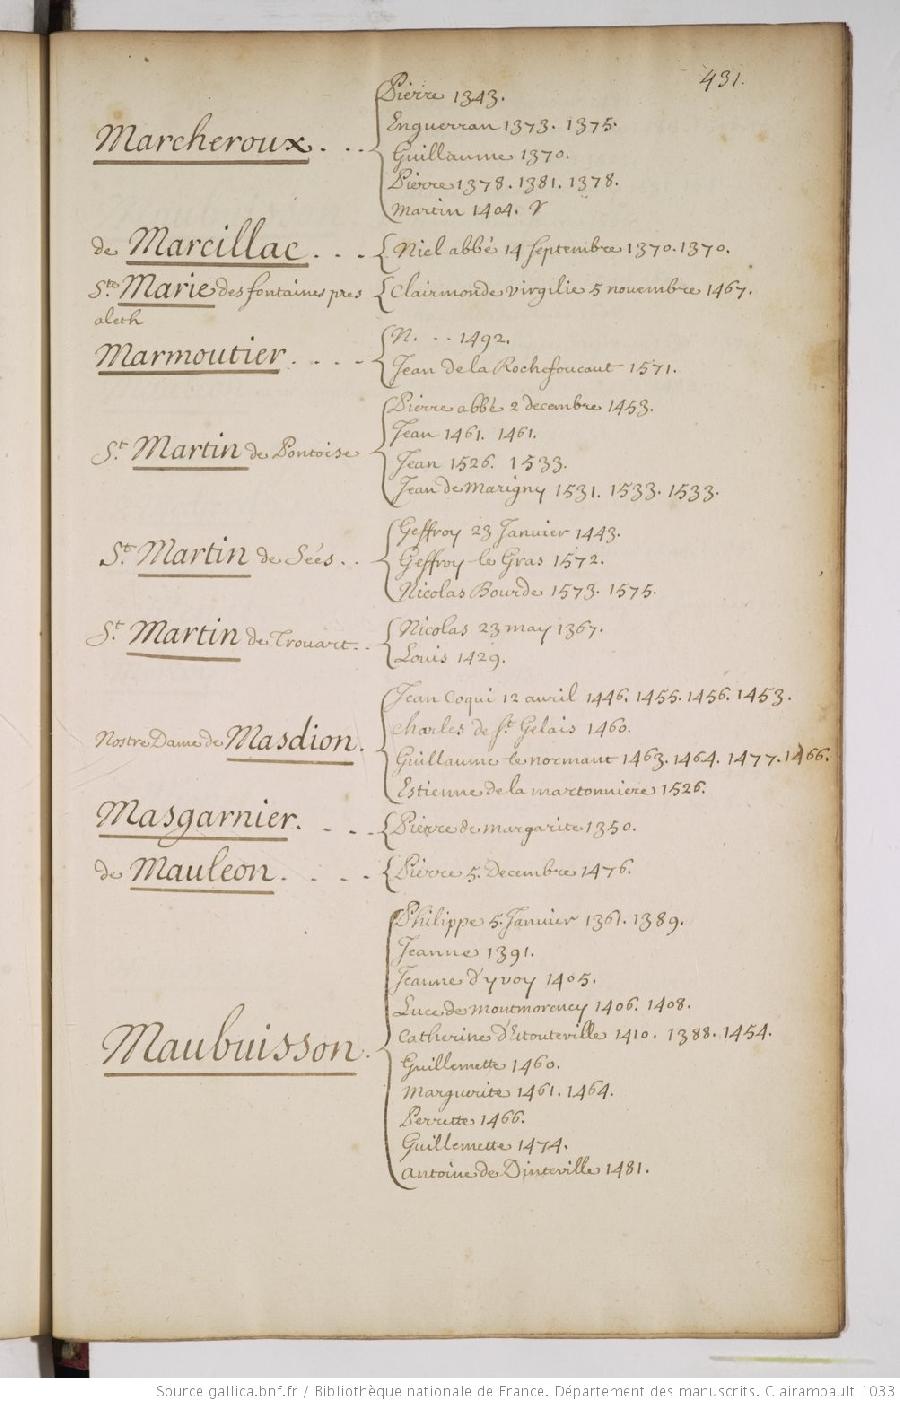 431.
Marcheroux. . .
Pierre 1343.
Enguerran 1373. 1375.
Guillaume 1370.
Pierre 1378. 1381. 1378.
Martin 1404.
de Marcillac. . . .
Niel abbé 14 septembre 1370. 1370.
Ste Marie des fontaines pres
aleth
Clairmonde virgilie 5 novembre 1467.
Marmoutier. . . . .
N. . . 1492.
Jean de la Rochefoucaut 1571.
St Martin de Pontoise
Pierre abbé 2 decembre 1453.
Jean 1461. 1461.
Jean 1526. 1533.
Jean de Marigny 1531. 1533. 1533.
St Martin de Sées. . .
Geffroy 23 Janvier 1443.
Geffroy le Gras 1572.
Nicolas Bourde 1573. 1575.
St Martin de Trouart. . .
Nicolas 23 may 1367.
Louis 1429.
Nostre Dame de Masdion.
Jean Coqui 12 avril 1446. 1455. 1456. 1453.
Charles de St Gelais 1460.
Guillaume le normant 1463. 1464. 1477. 1466.
Estienne de la martonniere 1526.
Masgarnier. . . .
Pierre de margarite 1350.
de Mauleon. . . . .
Pierre 5. Decembre 1476.
Maubuisson.
Philippe 5. Janvier 1361. 1389.
Jeanne 1391.
Jeanne d'yvoy 1405.
Luce de montmorency 1406. 1408.
Catherine d'Etouteville 1410. 1388. 1454.
Guillemette 1460.
Marguerite 1461. 1464.
Perrette 1466.
Guillemette 1474.
Antoine de Dinteville 1481.
Source gallica.bnf.fr / Bibliothèque nationale de France. Département des manuscrits. Clairambault 1033